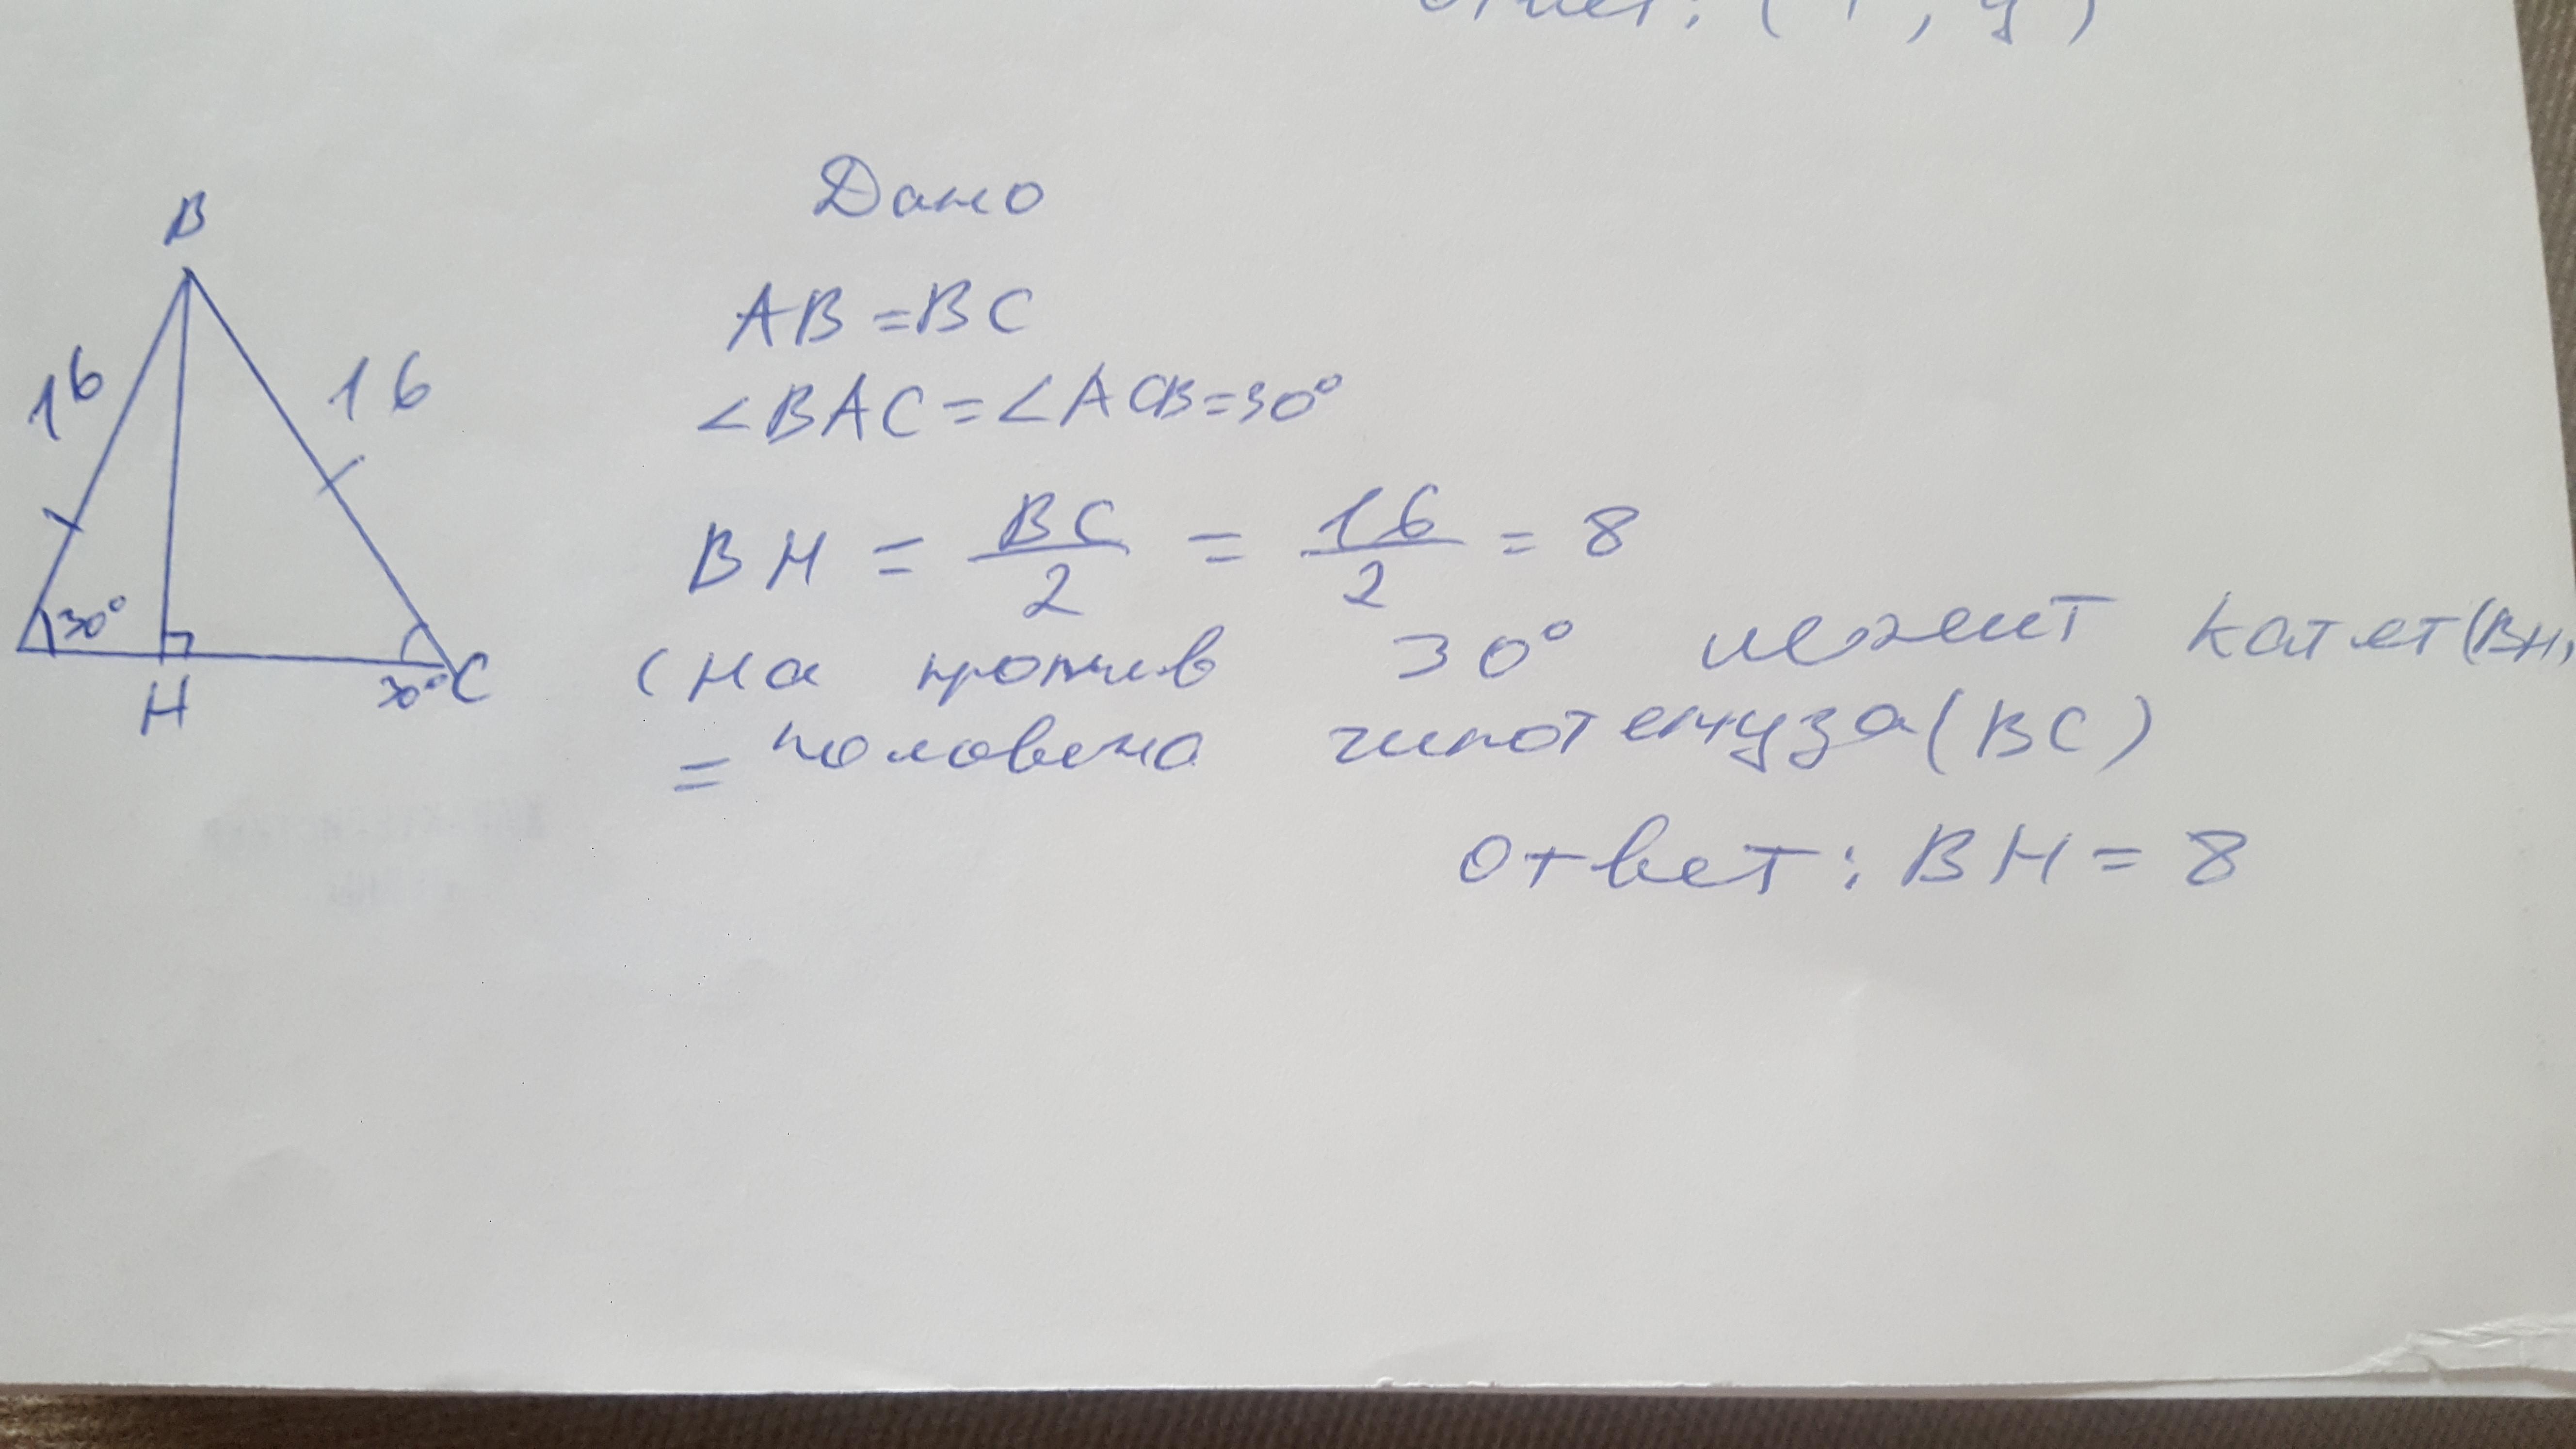 Дано
B
AB = BC
16
16
<BAC = <ACB = 30°
BH = BC/2 = 16/2 = 8
30°
(на против 30° лежит катет (BH)
H
30°
C
= половина гипотенуза (BC)
ответ: BH = 8